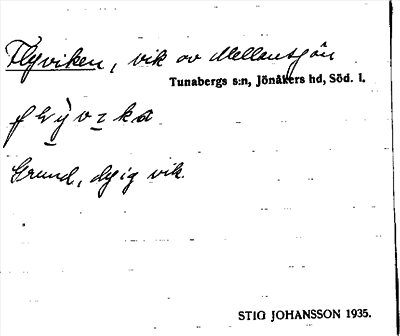 Flyviken, vik av Mellansjön
Tunabergs s:n, Jönåkers hd, Söd. l.
Grund, dyig vik.
STIG JOHANSSON 1935.